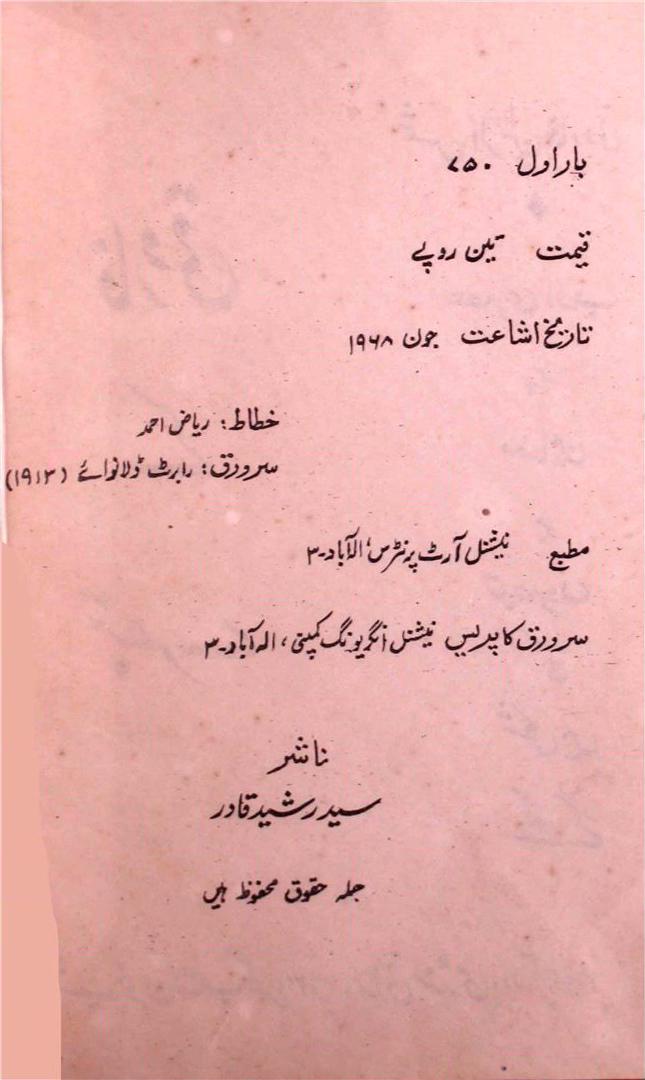 بار اول ۷۵۰
قیمت تین روپے
تاریخ اشاعت جون ۱۹۶۸
خطاط: ریاض احمد
سرورق: رابرٹ ڈلانوائے (۱۹۱۲)
مطبع نیشنل آرٹ پرنٹرس، الہ آباد-۳
سرورق کا پریس نیشنل انگریونگ کمپنی، الہ آباد-۳
ناشر
سید رشید قادر
جملہ حقوق محفوظ ہیں